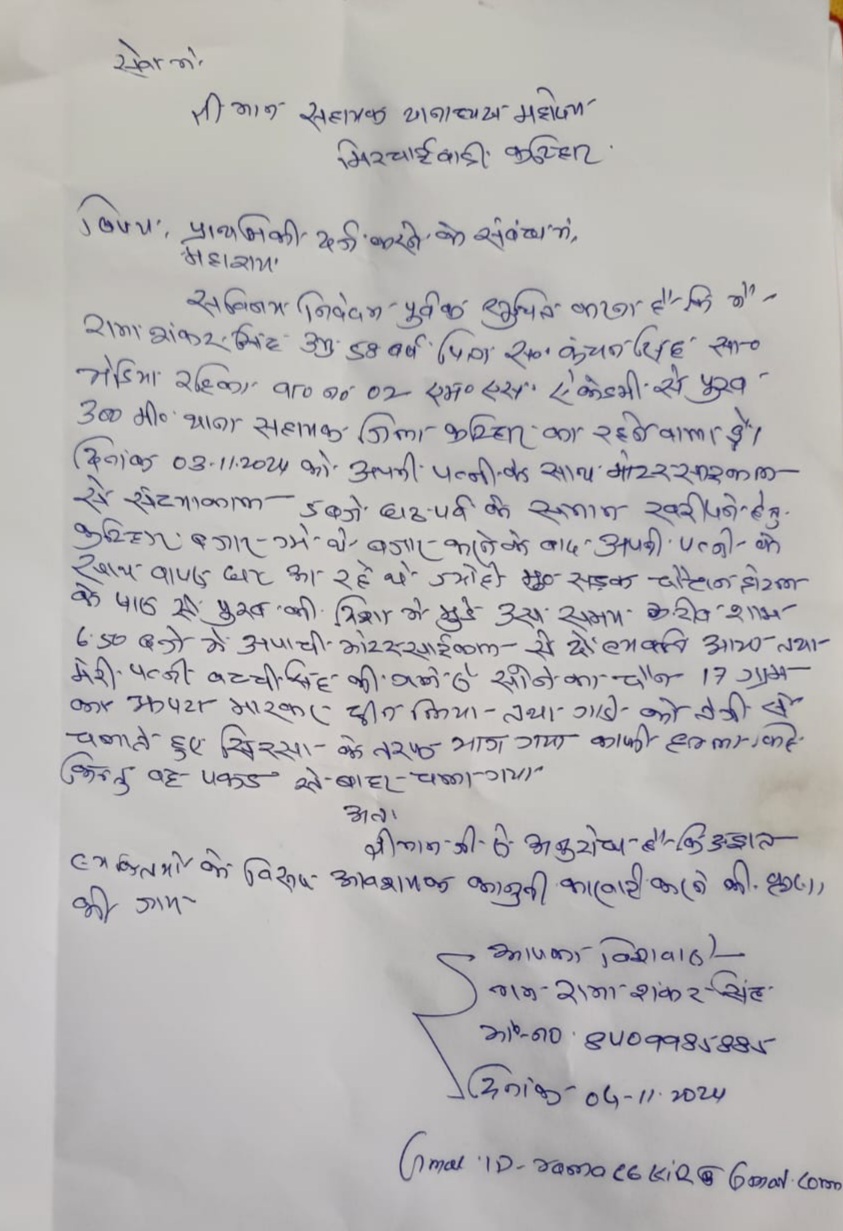 सेवा में,
श्री मान सहायक थानाध्यक्ष महोदय
मिरचाईबाड़ी कटिहार
विषय, प्राथमिकी दर्ज करने के संबंध में,
महाशय
सविनय निवेदन पूर्वक सूचित करना है कि मैं
रामा शंकर सिंह उम्र 58 वर्ष पिता स्व० कंचन सिंह सा०
रहिका वा० न० 02 एम० एस० ऐकेडमी से पुरब
300 मी० थाना सहायक जिला कटिहार का रहने वाला हूँ।
दिनांक 03.11.2024 को अपनी पत्नी के साथ मोटरसाइकल
से संध्याकाल 5 बजे छठ पर्व के समान खरीदने हेतु
कटिहार बजार गये थे बजार करने के बाद अपनी पत्नी के
साथ वापस घर आ रहे थे ज्योंही सड़क होटल
के पास से पुरब की दिशा में मुड़े उस समय करीब शाम
6:50 बजे में अपाची मोटरसाईकल से दो व्यक्ति आया तथा
मेरी पत्नी बच्ची सिंह की गले से सोने का चैन 17 ग्राम
का झपटा मारकर छीन लिया तथा गाड़ी को तेजी से
चलाते हुए सिरसा के तरफ भाग गया काफी हल्ला किये
किन्तु वह पकड़ से बाहर चला गया
अतः
श्रीमान जी से अनुरोध है कि अज्ञात
व्यक्तियों के विरूध आवश्यक कानुनी कारवाई करने की कृपा
की जाय
आपका विश्वासी
नाम रामा शंकर सिंह
मो० न० 8409985885
दिनांक 04-11-2024
Gmail ID- Gmail.com